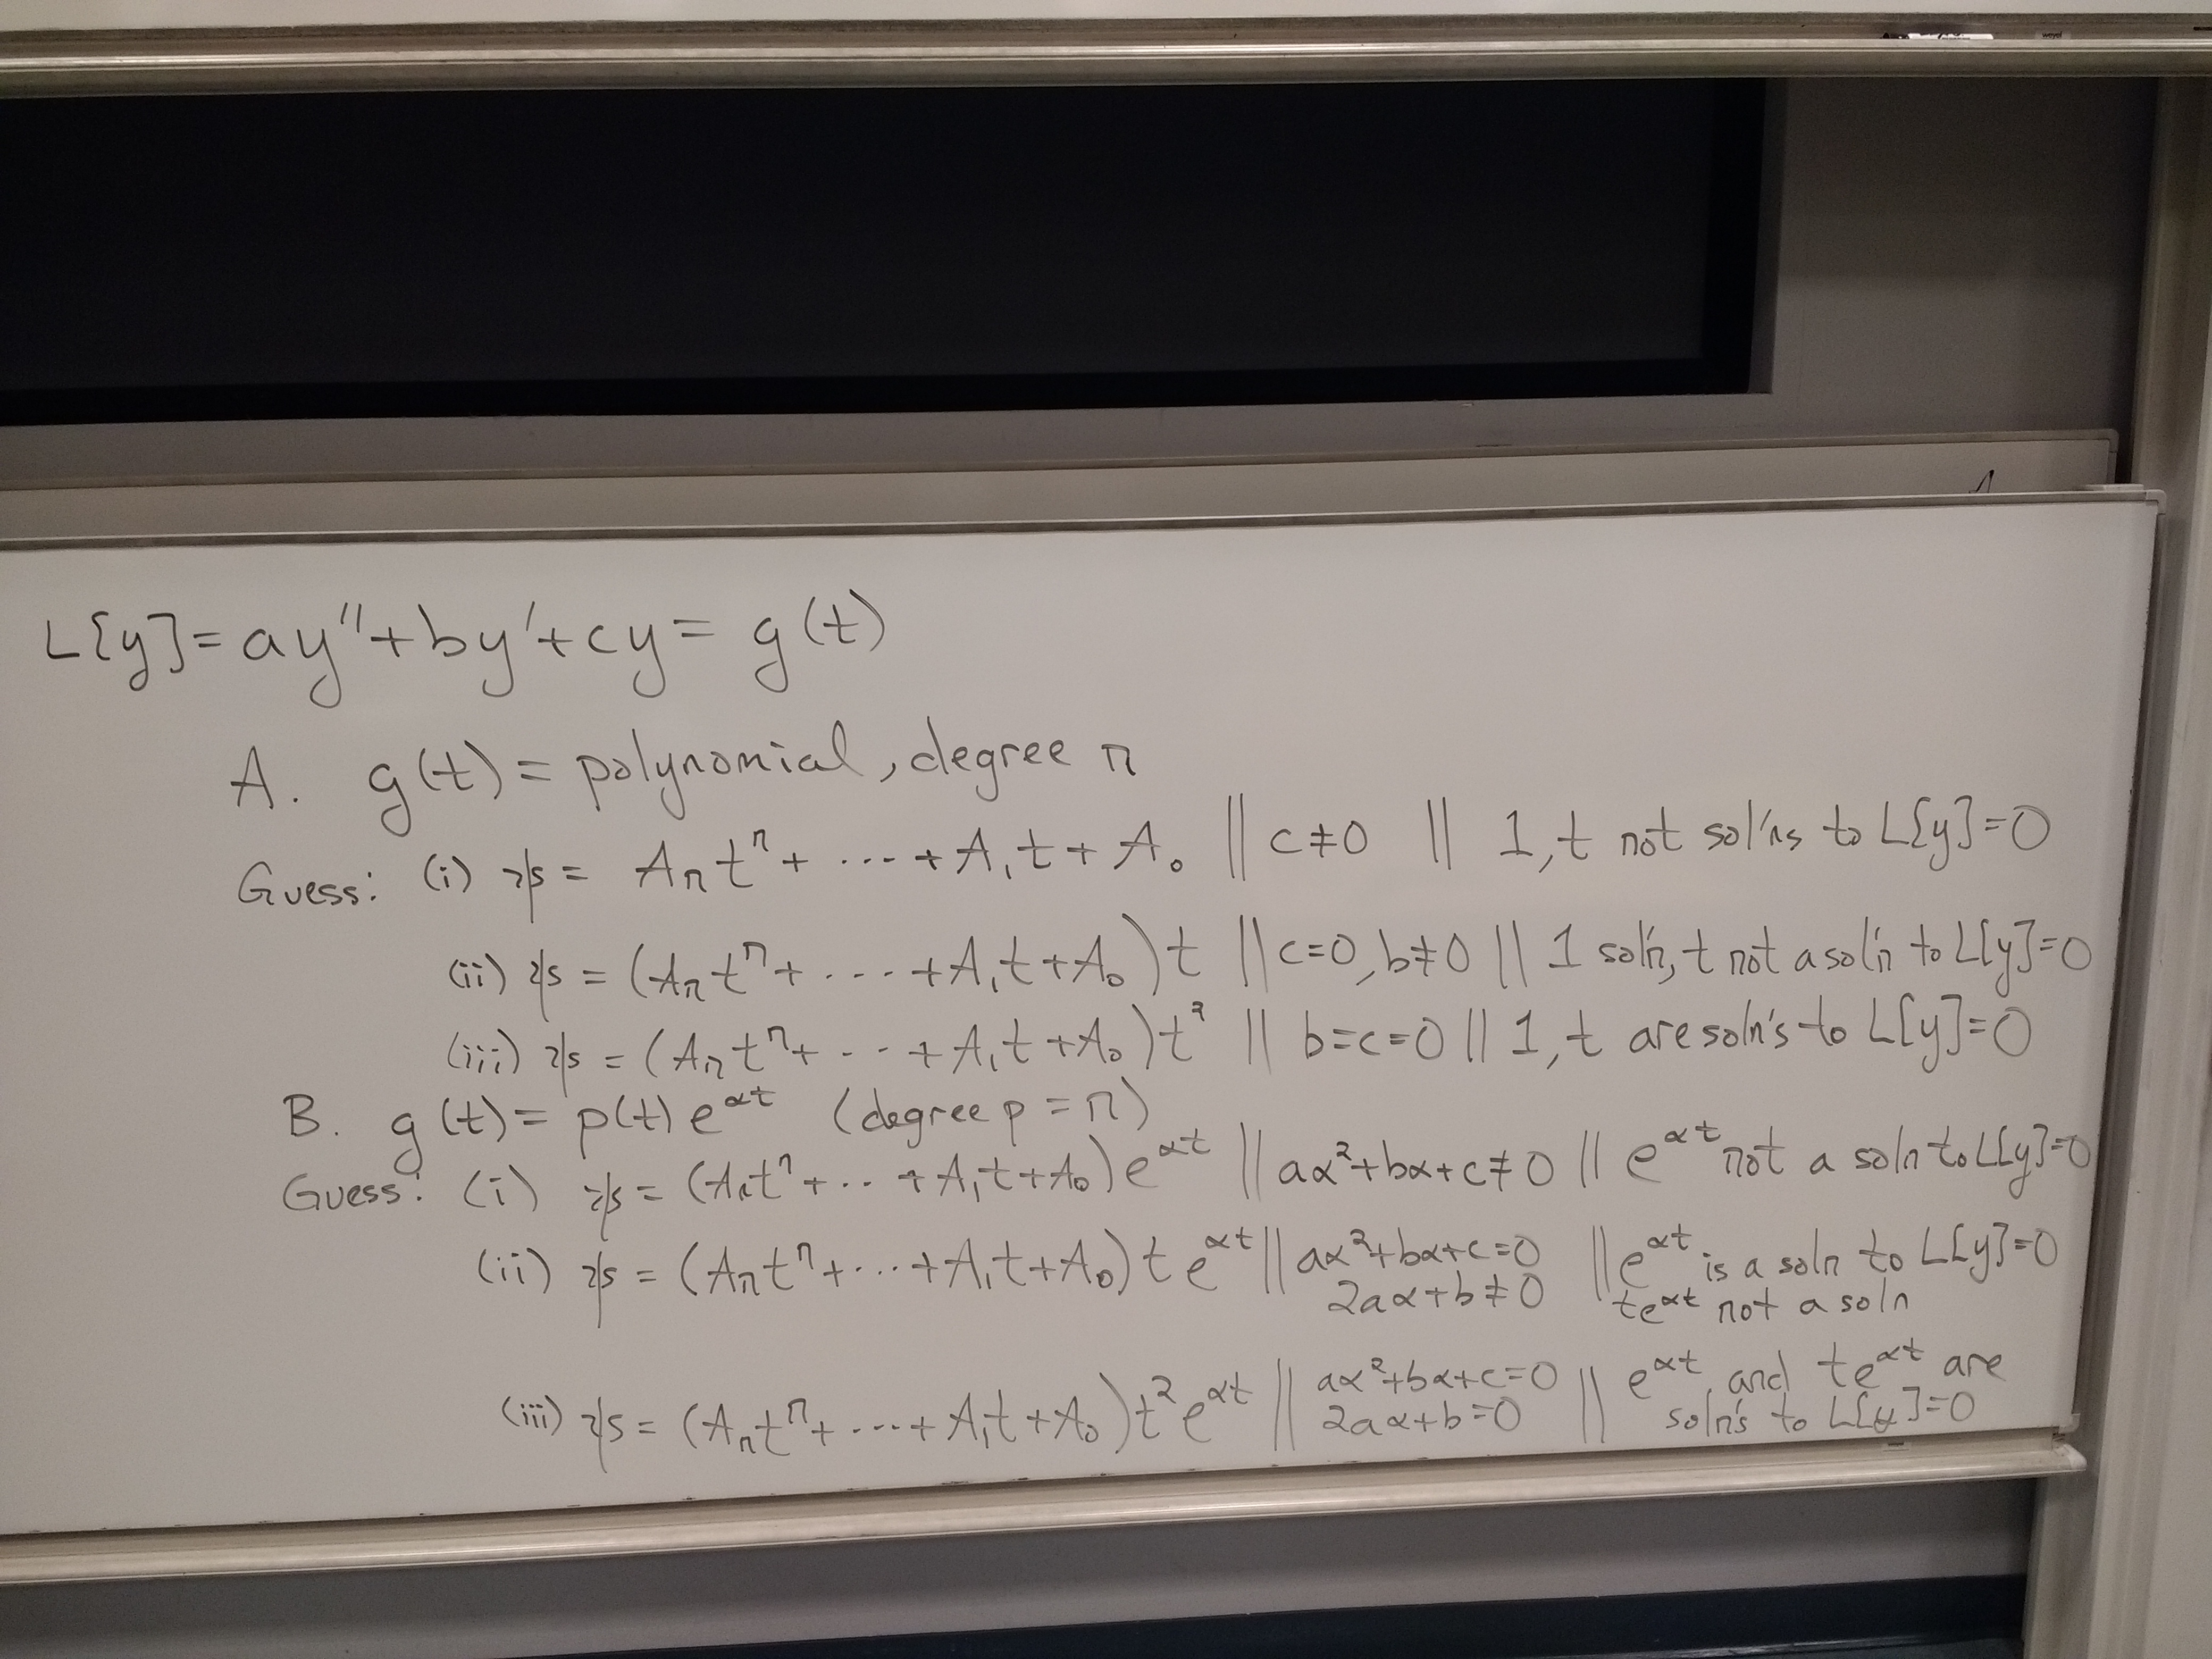 L[y]= ay''+by'+cy= g(t)
A. g(t)= polynomial, degree n
Guess: (i) ψ= Aₙtⁿ+ ···+A₁t+A₀ || c≠0 || 1,t not sol'ns to L[y]=0
(ii) ψ= (Aₙtⁿ+ ····+A₁t+A₀)t || c=0, b≠0 || 1 sol'n, t not a sol'n to L[y]=0
(iii) ψ= (Aₙtⁿ+ ···+A₁t+A₀)t² || b=c=0 || 1,t are soln's to L[y]=0
B. g(t)= p(t)e^αt (degree p = n)
Guess: (i) ψ= (Aₙtⁿ+··+A₁t+A₀)e^αt || aα²+bα+c≠0 || e^αt not a soln to L[y]=0
(ii) ψ= (Aₙtⁿ+···+A₁t+A₀)te^αt || aα²+bα+c=0 || e^αt is a soln to L[y]=0
2aα+b≠0 te^αt not a soln
(iii) ψ= (Aₙtⁿ+···+A₁t+A₀)t²e^αt || aα²+bα+c=0 || e^αt and te^αt are
2aα+b=0 soln's to L[y]=0